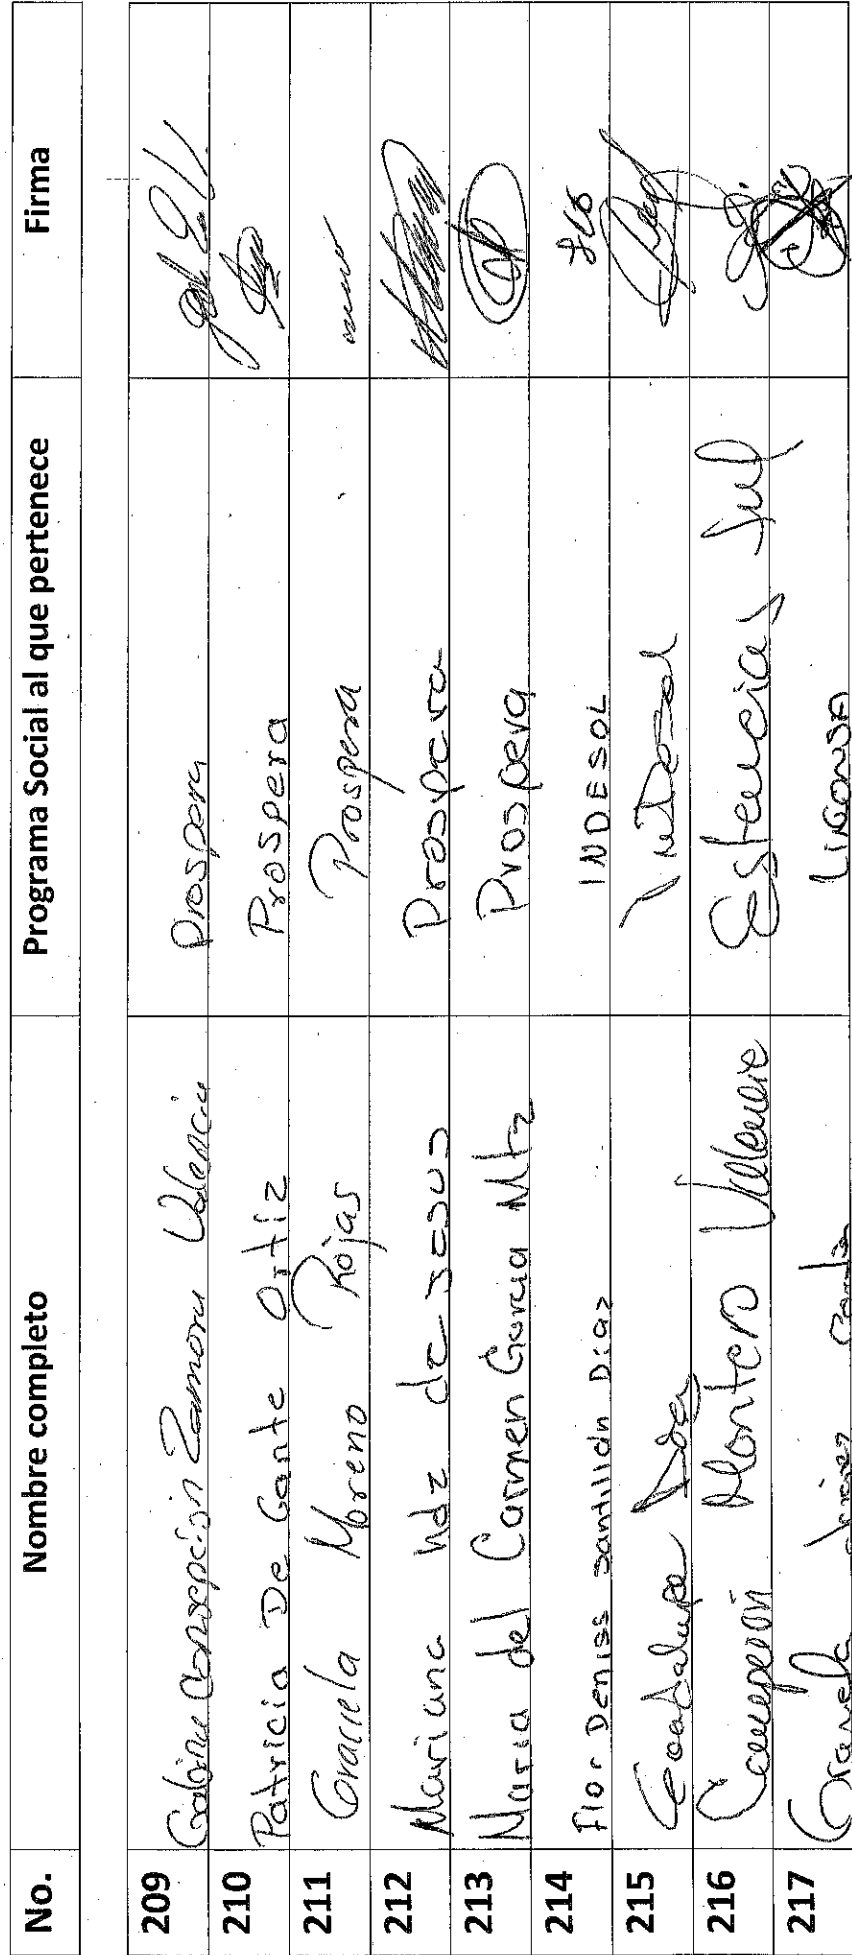 No. Nombre completo Programa Social al que pertenece Firma
209 Consepción Zamora Valencia Prospera
210 Patricia De Gante Ortiz Prospera
211 Graciela Moreno Rojas Prospera
212 Mariana hdz de Jesus Prospera
213 Maria del Carmen Garcia Mtz Prospera
214 Flor Deniss Santillán Díaz INDESOL
215 Guadalupe
216 Montero Estancias
217 Graciela Liconsa